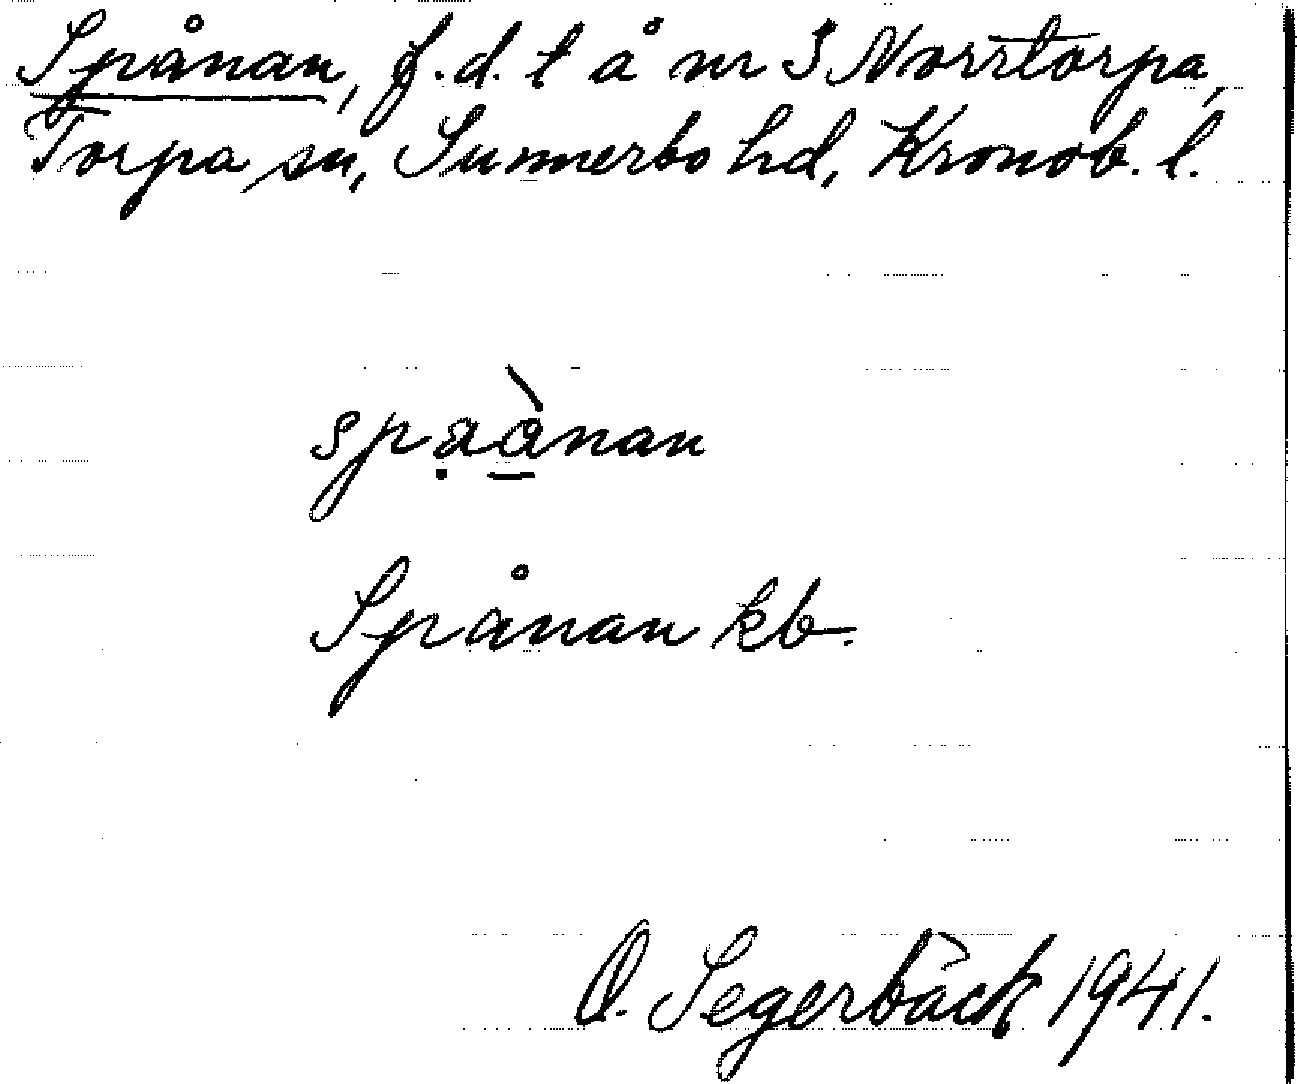 Spånan, f.d. t å nr 3 Norrtorpa,
Torpa sn, Sunnerbo hd, Kronob. l.
spạà̱nan
Spånan kb.
O. Segerbäck 1941.